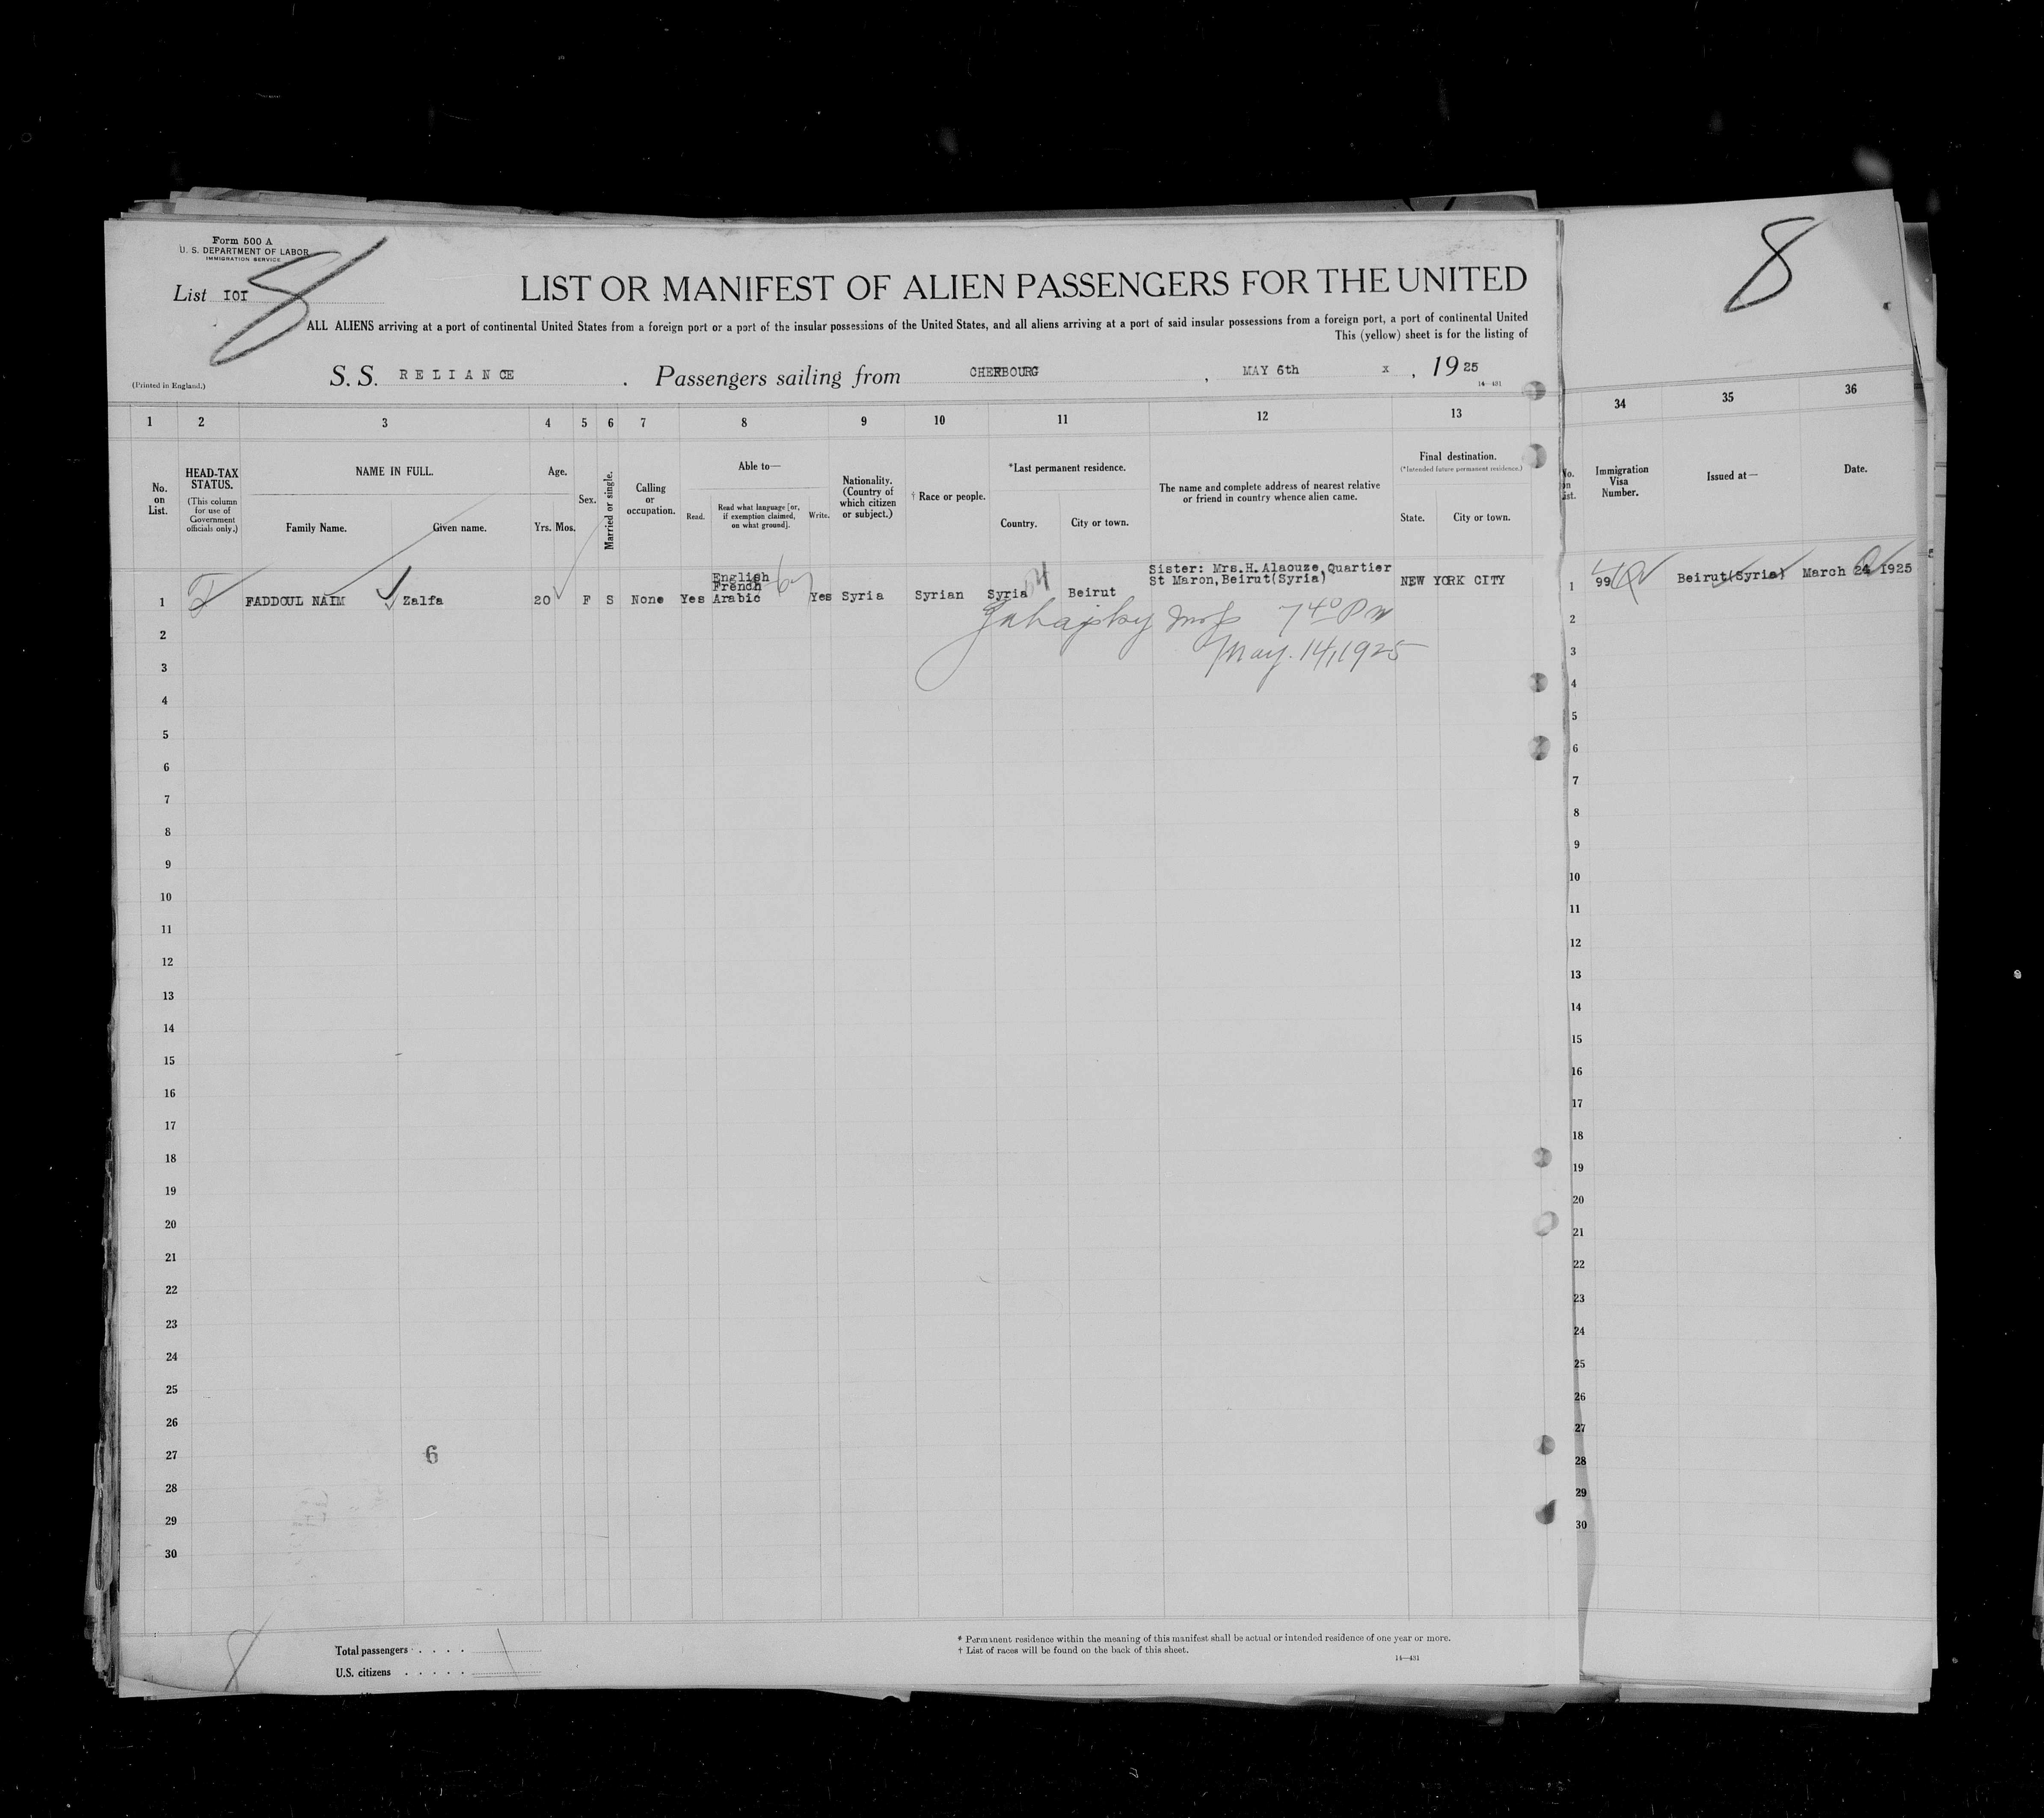 Form 500 A
U. S. DEPARTMENT OF LABOR
IMMIGRATION SERVICE
List IOI
8
8
LIST OR MANIFEST OF ALIEN PASSENGERS FOR THE UNITED
ALL ALIENS arriving at a port of continental United States from a foreign port or a port of the insular possessions of the United States, and all aliens arriving at a port of said insular possessions from a foreign port, a port of continental United
This (yellow) sheet is for the listing of
(Printed in England.)
S. S. RELIANCE . Passengers sailing from CHERBOURG , MAY 6th x , 1925
14—431
1 2 3 4 5 6 7 8 9 10 11 12 13 34 35 36
No. on List.
HEAD-TAX STATUS.
(This column for use of Government officials only.)
NAME IN FULL.
Family Name. Given name.
Age.
Yrs. Mos.
Sex.
Married or single.
Calling or occupation.
Able to—
Read. Read what language [or, if exemption claimed, on what ground]. Write.
Nationality. (Country of which citizen or subject.)
† Race or people.
*Last permanent residence.
Country. City or town.
The name and complete address of nearest relative or friend in country whence alien came.
Final destination.
(*Intended future permanent residence.)
State. City or town.
No. on List.
Immigration Visa Number.
Issued at—
Date.
1 FADDOUL NAIM Zalfa 20 F S None Yes English French Arabic Yes Syria Syrian Syria Beirut Sister: Mrs.H.Alaouze,Quartier St Maron,Beirut(Syria) NEW YORK CITY
1 99 Beirut(Syria) March 24 1925
7 40 PM
May. 14, 1925
2
3
4
5
6
7
8
9
10
11
12
13
14
15
16
17
18
19
20
21
22
23
24
25
26
27
28
29
30
6
2
3
4
5
6
7
8
9
10
11
12
13
14
15
16
17
18
19
20
21
22
23
24
25
26
27
28
29
30
Total passengers . . . . 1
U.S. citizens . . . . .
* Permanent residence within the meaning of this manifest shall be actual or intended residence of one year or more.
† List of races will be found on the back of this sheet.
14—431